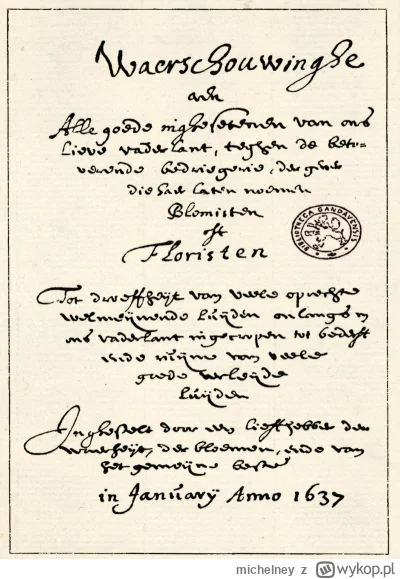 Waerschouwinghe
aen
Alle goede inghesetenen van ons
Lieve vaderlant, teghen de beto=
verende bedriegerie, der gener
die haer laten noemen
Blomisten
oft
Floristen
Tot droefheijt van veele oprechte
welmeijnende luijden onlangs in
ons vaderlant ingecropen tot bederf
ende ruijne van veele
goede verleijde
Luijden
Inghestelt door een liefhebber der
waerheijt, der bloemen, ende van
het gemeijne beste
in Januarij Anno 1637
BIBLIOTHECA GANDAVENSIS
michelney z wykop.pl